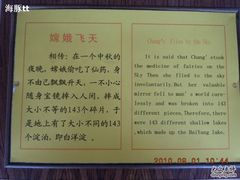 海豚tt
嫦娥飞天
相传：在一个中秋的
夜晚，嫦娥偷吃了仙药，身
不由己飘飘升天，一不小心
随身宝镜掉入人间，摔成
大小不等的143个碎片，于
是地上有了大小不同的143
个淀泊，即白洋淀。
Chang's Flies to the Sky
It is said that Chang' stook
the medicine of fairies on
the Sky Then she flied to the sky
involuntarily.But her valuable
mirror fell to man's world care-
lessly and was broken into 143
different pieces.Therefore,there
were 143 different shallow lakes,
which made up the Baiyang lake.
2010_08_01 10:44